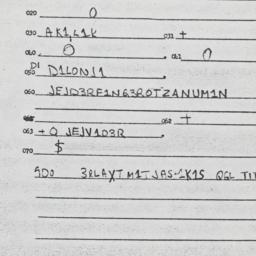 020 0
030 AK1,L1K 031 +
040 0 041 0
DI
050 D1LONJ1
060 JEJD3RF1NG3ROTZANUM1N
062 +
063 + O JEJV1D3R
070 $
500 3RLAXT M1TJAS-1K1S QGL